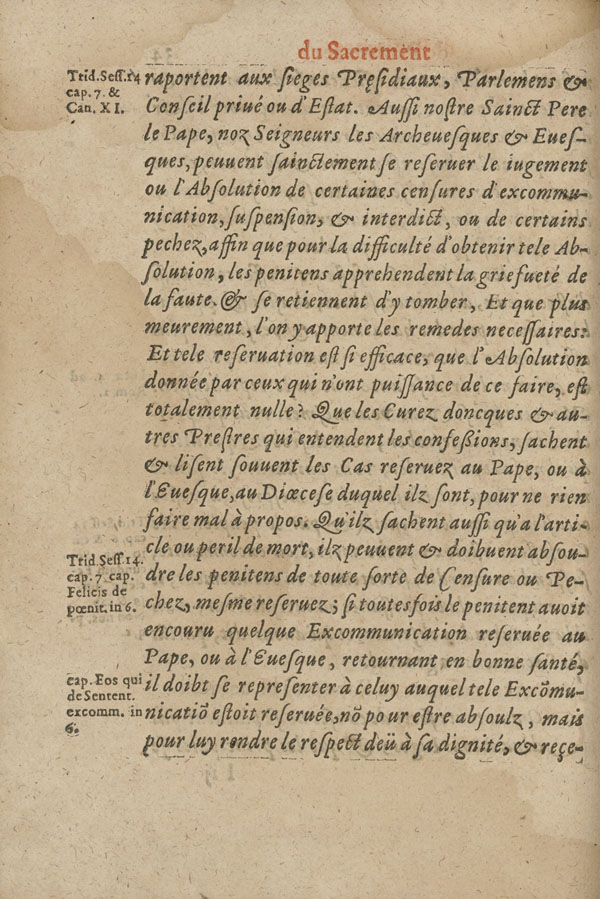 du Sacrement
Trid. Seſſ. 14
cap. 7. &
Can. XI.
raportent aux ſieges Pręſidiaux, Parlemens &
Conſeil priué ou d'Eſtat. Auſſi noſtre Sainct Pere
le Pape, noz Seigneurs les Archeueſques & Eueſ-
ques, peuuent ſainctement ſe reſeruer le iugement
ou l'Abſolution de certaines cenſures d'excommu-
nication, ſuſpenſion, & interdict, ou de certains
pechez, affin que pour la difficulté d'obtenir tele Ab-
ſolution, les penitens apprehendent la griefueté de
la faute. & ſe retiennent d'y tomber, Et que plus
meurement, l'on y apporte les remedes neceſſaires:
Et tele reſeruation eſt ſi efficace, que l'Abſolution
donnée par ceux qui n'ont puiſſance de ce faire, eſt
totalement nulle? Que les Curez doncques & au-
tres Preſtres qui entendent les confeßions, ſachent
& liſent ſouuent les Cas reſeruez au Pape, ou à
l'Eueſque, au Diœceſe duquel ilz ſont, pour ne rien
faire mal à propos. Qu'ilz ſachent auſſi qu'a l'arti-
cle ou peril de mort, ilz peuuent & doibuent abſou-
dre les penitens de toute ſorte de Cenſure ou Pe-
chez, meſme reſeruez; ſi toutesfois le penitent auoit
encouru quelque Excommunication reſeruée au
Pape, ou à l'Eueſque, retournant en bonne ſanté,
il doibt ſe repreſenter à celuy auquel tele Excõmu-
nicatiõ eſtoit reſeruée, nõ pour eſtre abſoulz, mais
pour luy rendre le reſpect deü à ſa dignité, & reçe-
Trid. Seſſ. 14.
cap. 7. cap.
Felicis de
pœnit. in 6.
cap. Eos qui
de Sentent.
excomm. in
6.